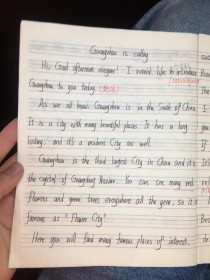 Guangzhou is calling
Hi, Good afternoon everyone! I would like to introduce
Guangzhou to you today.
As we all know, Guangzhou is in the South of China.
It is a city with many beautiful places. It has a long
history, and it's a modern City as well.
Guangzhou is the third largest City in China and it is
the capital of Guangdong Province. You can see many red
flowers and green trees everywhere all the year, so it is
famous as "Flower City".
Here you will find many famous places of interest.